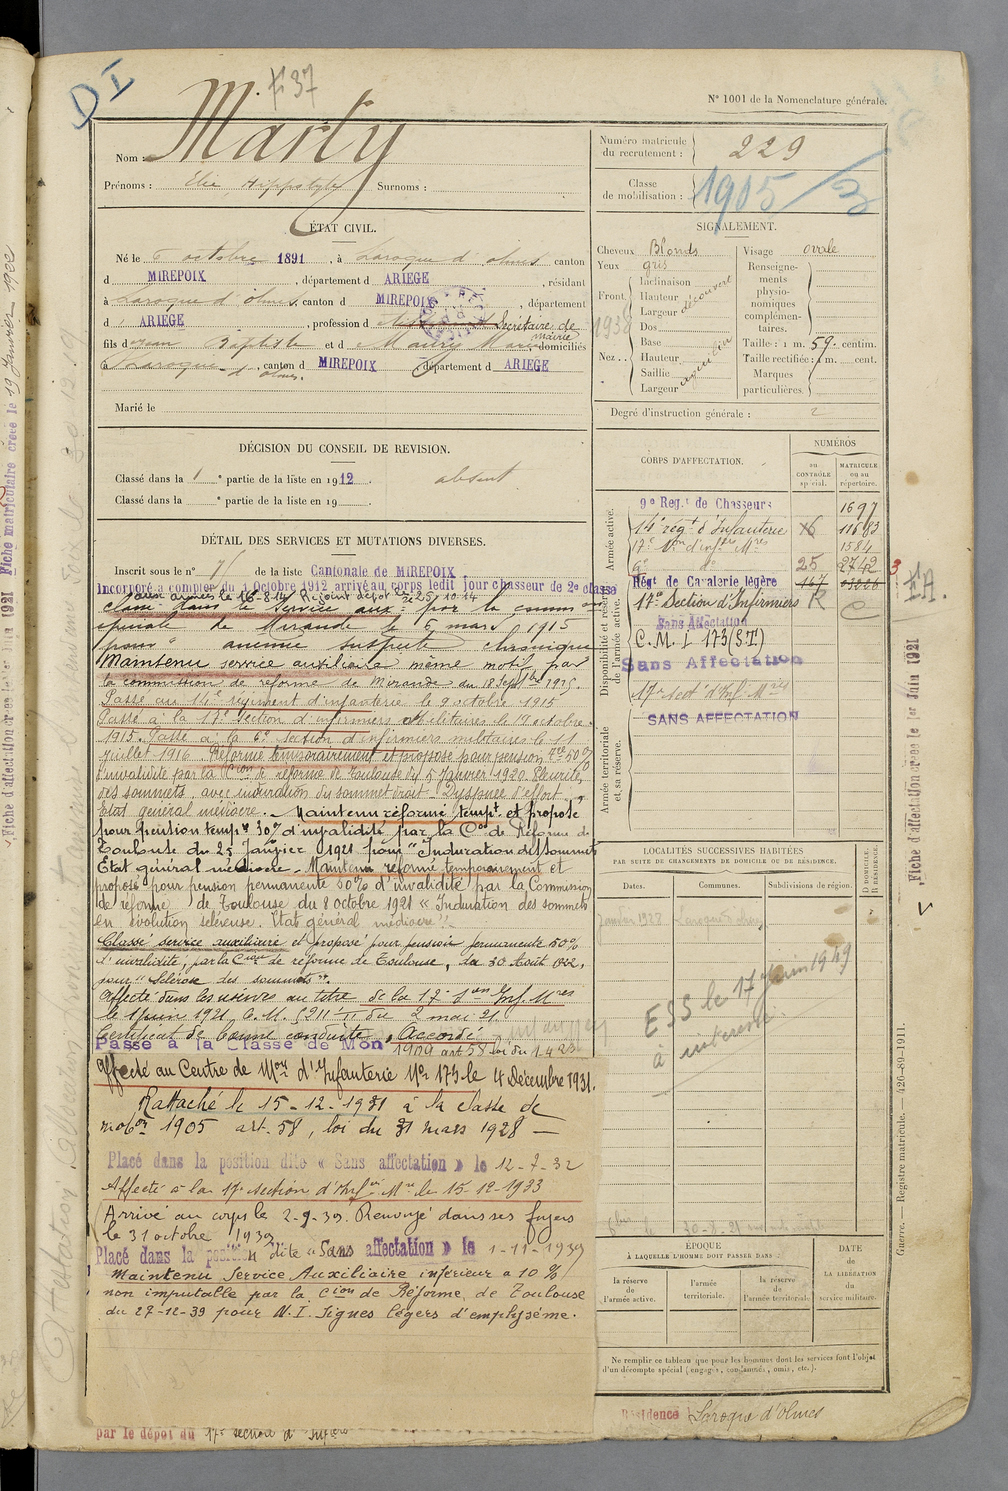 D I
F 37
N° 1001 de la Nomenclature générale.
Nom : Marty
Prénoms : Elie Hippolyte Surnoms :
Numéro matricule du recrutement : 229
Classe de mobilisation : 1905/3
ÉTAT CIVIL.
Né le 6 octobre 1891, à Laroque d'olmes canton
d MIREPOIX, département d ARIEGE, résidant
à Laroque d'olmes, canton d MIREPOIX, département
d ARIEGE, profession d Secrétaire de mairie
fils d Jean Baptiste et d Maury Marie, domiciliés
à Laroque d'olmes, canton d MIREPOIX, département d ARIEGE
Marié le
SIGNALEMENT.
Cheveux Blonds
Yeux gris
Front Inclinaison
Hauteur découvert
Largeur
Nez Dos
Base
Hauteur aquilin
Saillie
Largeur
Visage ovale
Renseignements physionomiques complémentaires.
Taille : 1 m. 59 centim.
Taille rectifiée : 1 m. cent.
Marques particulières
1938
Degré d'instruction générale : 2
DÉCISION DU CONSEIL DE REVISION.
Classé dans la 1e partie de la liste en 1912. absent
Classé dans la e partie de la liste en 19
DÉTAIL DES SERVICES ET MUTATIONS DIVERSES.
Inscrit sous le n° de la liste Cantonale de MIREPOIX
Incorporé à compter du 1 Octobre 1912 arrivé au corps ledit jour chasseur de 2e classe
Classé dans le service aux: par la comm on
spéciale de Mirande le 6 mars 1915
pour
Maintenu service auxiliaire même motif par
la Committion de réforme de Mirande du 18 Septbre 1915.
Passé au 14e régiment d'infanterie le 9 octobre 1915
Passé à la 17e Section d'infirmiers militaires le 19 octobre
1915. Passé à la 6e section d'infirmiers militaires le 11
juillet 1916. Réformé temporairement et proposé pour pension tre 50%
d'invalidité par la Con de réforme de Toulouse du 5 Janvier 1920. Pleurite
des sommets, avec induration du sommet droit. Dyspnée d'effort.
Etat général médiocre. - Maintenu réformé tempt. et proposé
pour pension tempre 30% d'invalidité par la Con de Réforme de
Toulouse du 25 Janvier 1921 pour "Induration des sommets
Etat général médiocre. Maintenu réformé temporairement et
proposé pour pension permanente 50% d'invalidité par la Commission
de réforme de Toulouse du 8 octobre 1921 « Induration des sommets
en évolution scléreuse. Etat général médiocre".
Classé service auxiliaire et proposé pour pension permanente 50%
d'invalidité, par la Cion de réforme de Toulouse, du 30 Août 1922,
pour "Sclérose des sommets".
Affecté dans les réserves au titre de la 17e Son Inf. Mres
le 1 Juin 1921, C.M. 5211 du 2 mai 21
Certificat de bonne conduite, Accordé
Passé à la Classe de Mon 1909 art. 58 loi du 1.4.23
Affecté au Centre de Mon d'Infanterie No 173 le 4 Décembre 1931.
Rattaché le 15-12-1931 à la classe de
mobon 1905 art. 58, loi du 31 mars 1928 —
Placé dans la position dite « Sans affectation » le 12-7-32
Affecté à la 17e section d'Infers Mres le 15-12-1933
Arrivé au corps le 2-9-39. Renvoyé dans ses foyers
le 31 octobre 1939
Placé dans la position dite « Sans affectation » le 1-11-1939
Maintenu Service Auxiliaire inférieur à 10 %
non imputable par la Cion de Réforme de Toulouse
du 27-12-39 pour N.I. Signes légers d'emphysème.
par le dépôt du 17e section d'
CORPS D'AFFECTATION.
NUMÉROS
AU CONTRÔLE spécial.
MATRICULE ou au répertoire.
Armée active.
9e Regt de Chasseurs 1697
14e régt d'Infanterie 16 11683
17e Son d'infres Mres 1584
6e do 25 2742
Disponibilité et réserve de l'armée active.
Régt de Cavalerie légère 167
17e Section d'Infirmiers R C
Sans Affectation
C.M.I 173 (S.T)
Sans Affectation
17e Sect. d'Inf. Mres
SANS AFFECTATION
Armée territoriale et sa réserve.
LOCALITÉS SUCCESSIVES HABITÉES
PAR SUITE DE CHANGEMENTS DE DOMICILE OU DE RÉSIDENCE.
Dates. Communes. Subdivisions de région. D DOMICILE. R RÉSIDENCE.
Janvier 1928 Laroque d'olmes
ESS le 17 Juin 1949
à
ÉPOQUE
À LAQUELLE L'HOMME DOIT PASSER DANS :
DATE de LA LIBÉRATION du service militaire.
la réserve de l'armée active.
l'armée territoriale.
la réserve de l'armée territoriale
Ne remplir ce tableau que pour les hommes dont les services font l'objet
d'un décompte spécial (engagés, condamnés, omis, etc.).
Résidence : Laroque d'Olmes
Guerre. — Registre matricule. — 426-89-1911.
Fiche d'affectation créée le 1er Juin 1921
F.A.
Fiche matriculaire créée le 19 Janvier 1922
Fiche d'affectation créée le 1er Juin 1921